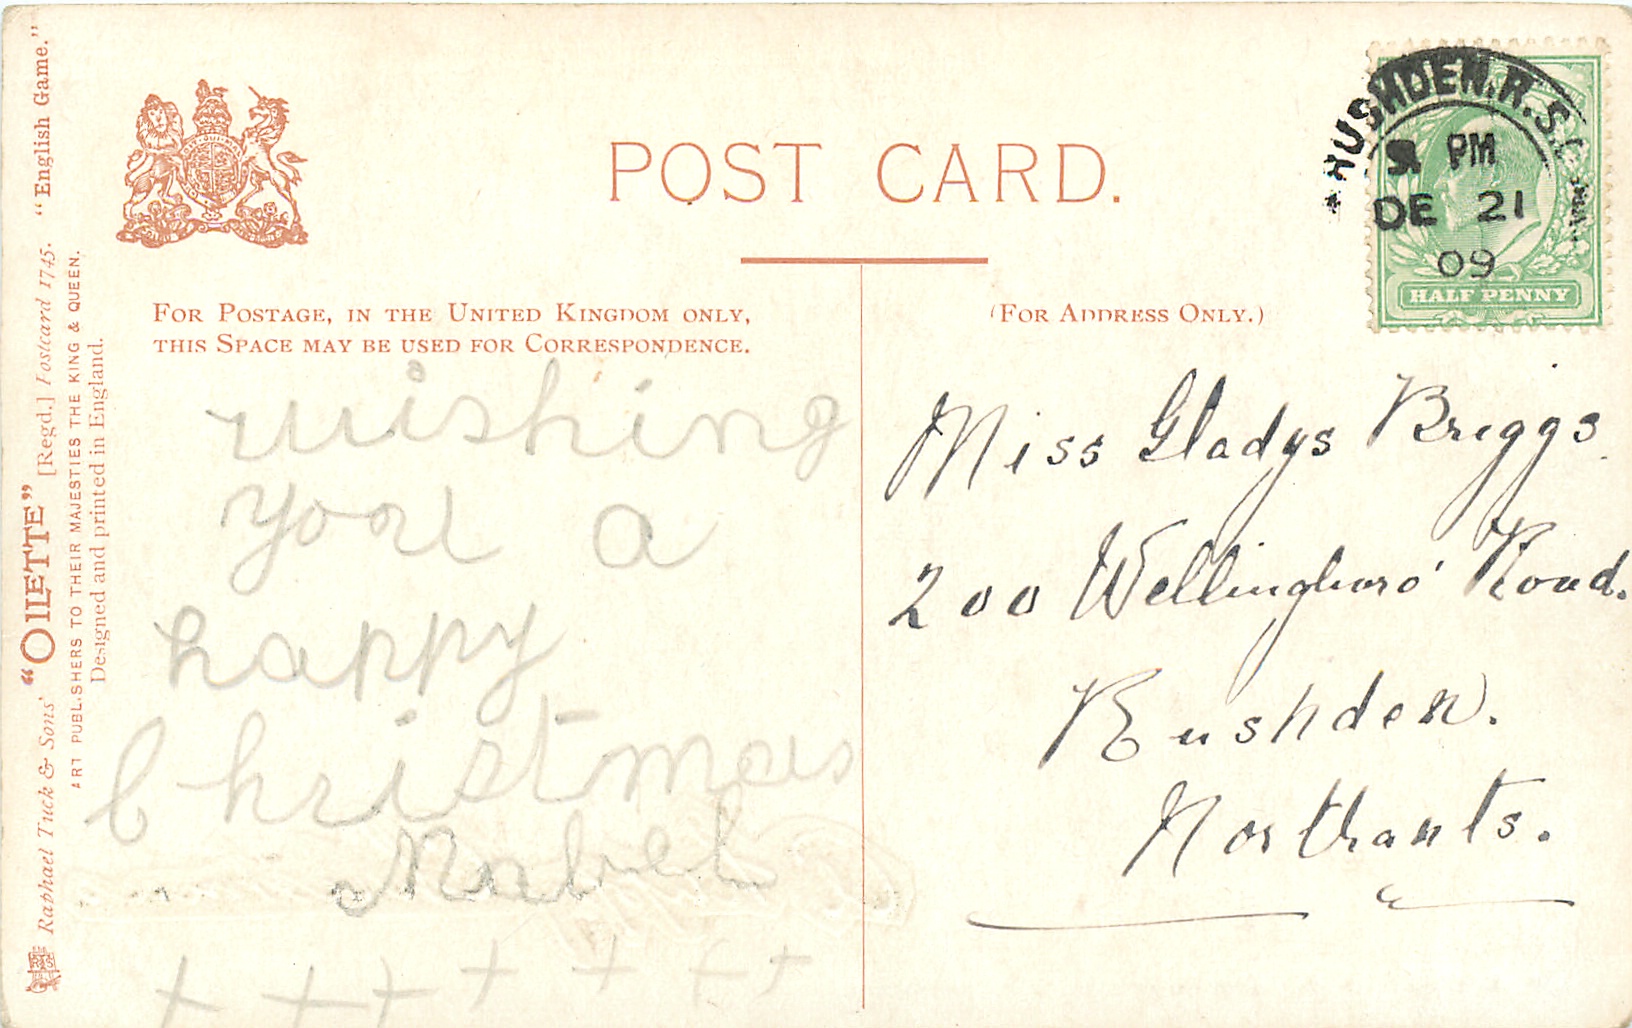 POST CARD.
FOR POSTAGE, IN THE UNITED KINGDOM ONLY,
THIS SPACE MAY BE USED FOR CORRESPONDENCE.
(FOR ADDRESS ONLY.)
wishing
you a
happy
Christmas
Mabel
+ + + + + + +
Miss Gladys Briggs
200 Wellingboro' Road.
Rushden.
Northants.
RUSHDEN.R.S.O.
PM
DE 21
09
HALF PENNY
Raphael Tuck & Sons' "OILETTE" [Regd.] Postcard 1745. "English Game."
ART PUBLISHERS TO THEIR MAJESTIES THE KING & QUEEN.
Designed and printed in England.